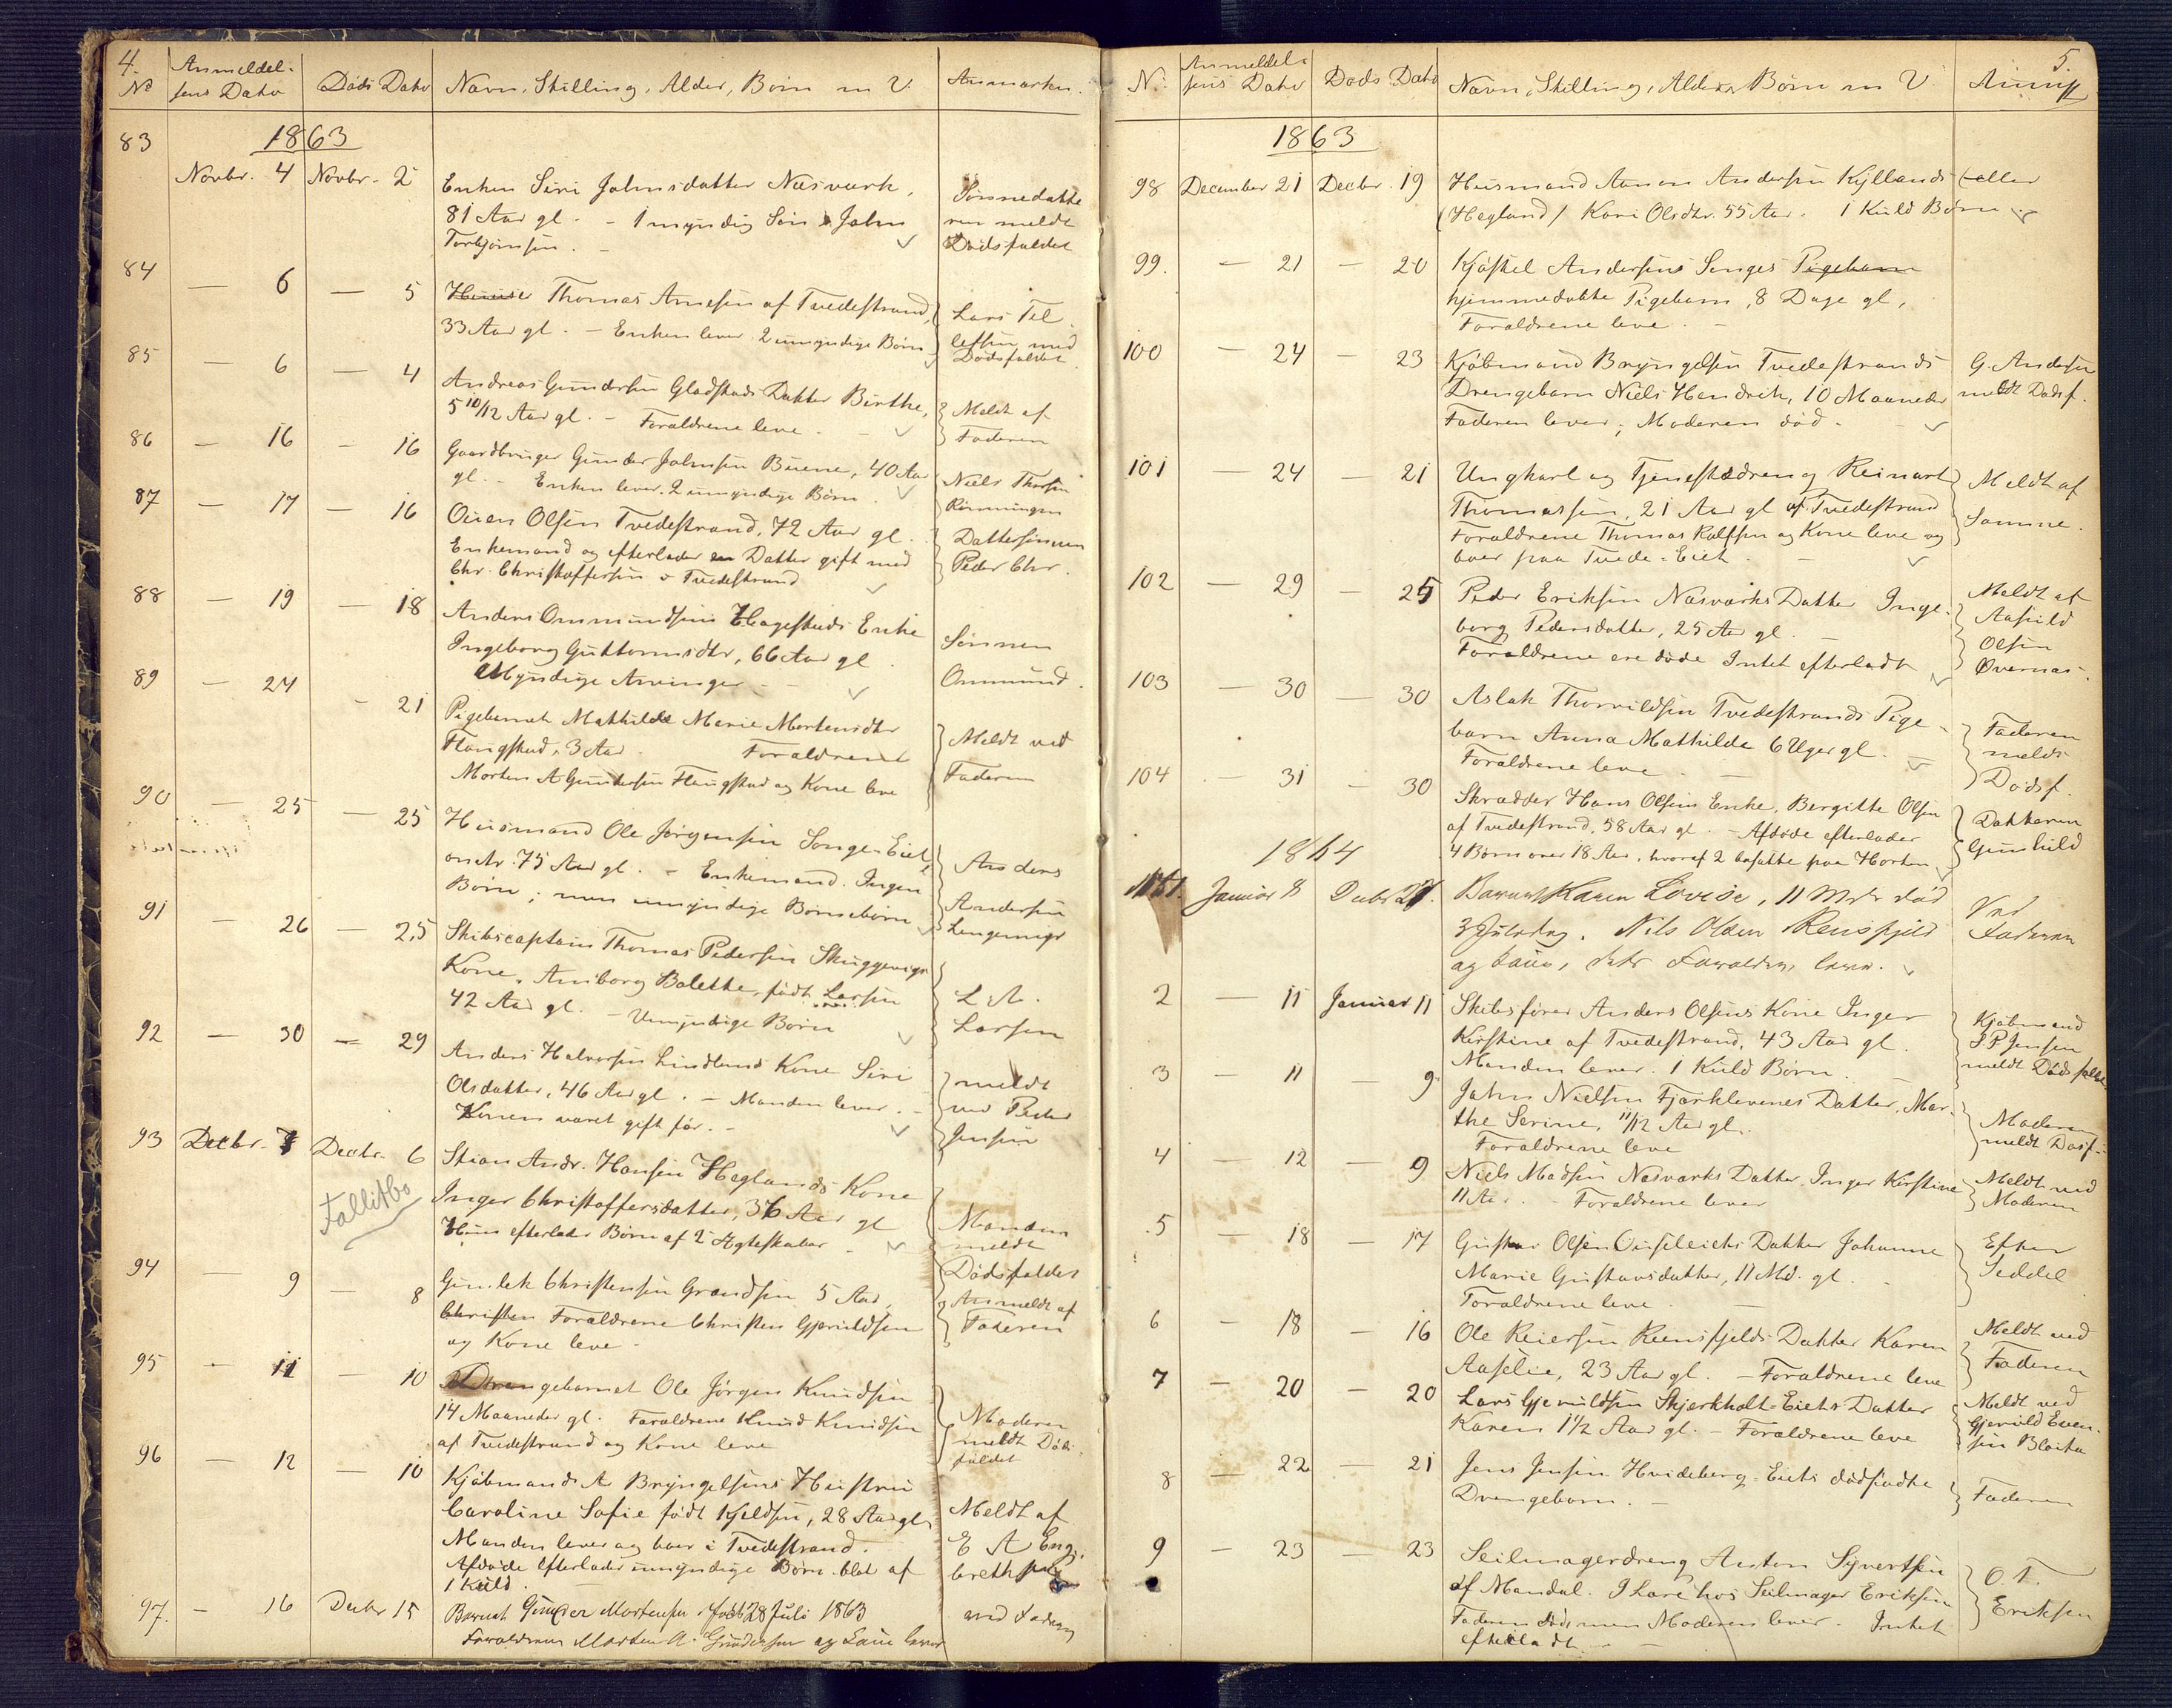 4.
No Anmeldel- Døds Dato Navn, Stilling, Alder, Børn m V. Anmærkn.
sens Dato
1863
83 Novbr. 4 Novbr. 2 Enken Siri Jahnsdatter Næsværk, Sønnedatte
81 Aar gl. - 1 myndig Søn Jahn ren meldt
Torbjørnsen. - Dødsfaldet
84 — 6 — 5 Thomas Arnesen af Tvedestrand, Lars Tel
33 Aar gl. - Enken lever 2 umyndige Børn lefsen med
Dødsfaldet
85 — 6 — 4 Andreas Gundersen Gladstads Datter Birthe, Meldt af
5 10/12 Aar gl. - Forældrene leve. - Faderen
86 — 16 — 16 Gaardbruger Gunder Jahnsen Buene, 40 Aar Niels
gl. - Enken lever. 2 umyndige Børn.
87 — 17 — 16 Olsen Tvedestrand, 72 Aar gl. Dattersønnen
Enkemand og efterlader en Datter gift med Peder Chr.
Chr. Christoffersen i Tvedestrand
88 — 19 — 18 Anders Ommundsens Hagestads Enke Sønnen
Ingeborg Guttormsdtr, 66 Aar gl. Ommund.
Myndige Arvinger -
89 — 24 - 21 Pigebarnet Mathilde Marie Mortensdtr Meldt ved
3 Aar. Forældrene Faderen
Morten A Gundersen og Kone leve
90 — 25 — 25 Husmand Ole Jørgensen Songe-Eiet Anders
75 Aar gl. - Enkemand. Ingen Andersen
Børn; men umyndige Børnebørn
91 - 26 — 25 Skibscaptain Thomas Pedersen
Kone, Anborg Bolette, født Larsen L. A.
42 Aar gl. - Umyndige Børn Larsen
92 — 30 — 29 Anders Halvorsen Lindlands Kone Siri meldt
Olsdatter, 46 Aar gl. - Manden lever. - ved Peder
Konen været gift før. - Jensen
93 Decbr. 7 Decbr. 6 Stian Andr. Hansen Heglands Kone Manden
Fallitbo Inger Christoffersdatter, 36 Aar gl meldt
Hun efterlader Børn af 2 Ægteskaber - Dødsfaldet
94 — 9 — 8 Christensen 5 Aar, Anmeldt af
Christen Forældrene Christen Gjeruldsen Faderen
og Kone leve -
95 - 11 — 10 Drengebarnet Ole Jørgen Knudsen Moderen
14 Maaneder gl. Forældrene Knud Knudsen meldt Døds
af Tvedestrand og Kone leve faldet
96 — 12 — 10 Kjøbmand A Bryngelsens Hustru Meldt af
Caroline Sofie født Kjeldsen, 28 Aar gl. E A Eng-
Manden lever og boer i Tvedestrand. brethsen
Afdøde efterlader umyndige Børn blot af
1 Kuld.
97. - 16 Decbr 15 Barnet Gunder Mortensen født 28 Juli 1863 ved Faderen
Forældrene Morten A. Gundersen og Kone lever
5.
No. Anmeldel- Døds Dato Navn, Stilling, Alder, Børn m V. Anmk
sens Dato
1863
98 December 21 Decbr. 19 Husmand Aanon Andersen Kyllands eller
(Hegland) Kari Olsdtr. 55 Aar. 1 Kuld Børn
99. — 21 — 20 Kjøstel Andersens Songes Pigebarn
hjemmedøbte Pigebarn, 8 Dage gl,
Forældrene leve. -
100 — 24 - 23 Kjøbmand Bryngelsen Tvedestrands G. Andersen
Drengebarn Niels Hendrik, 10 Maaneder meldt Dødsf.
Faderen lever; Moderen død.
101 — 24 — 21 Ungkarl og Tjenestedreng Reinart Meldt af
Thomassen, 21 Aar gl af Tvedestrand Samme.
Forældrene Thomas Rolfsen og Kone leve og
boer paa Tvede-Eiet. -
102 — 29 — 25 Peder Eriksen Næsværks Datter Inge- Meldt af
borg Pedersdatter, 25 Aar gl. - Aasild
Forældrene ere døde Intet efterladt Olsen
Øvernæs.
103 — 30 — 30 Aslak Thorvildsen Tvedestrands Pige- Faderen
barn Anna Mathilde 6 Uger gl. meldt
Forældrene leve. - Dødsf.
104 - 31 - 30 Skrædder Hans Olsens Enke, Bergitte Olsen Datteren
af Tvedestrand, 58 Aar gl. - Afdøde efterlader Gunhild
4 Børn over 18 Aar, hvoraf 2 bosatte paa Horten
1864
1. Januar 8 Decbr 27. Barnet Karen Lovise, 11 Mdr død Ved
3 Juledag. Nils Olsen Reinsfjeld Faderen
og Kone, dets Forældre, lever.
2 — 11 Januar 11 Skibsfører Anders Olsens Kone Inger Kjøbmand
Kirstine af Tvedestrand, 43 Aar gl. J P Jensen
Manden lever. 1 Kuld Børn. - meldt Dødsfaldet
3 — 11 — 9 Jahn Nielsen Fjærklevenes Datter, Mar- Moderen
the Serine, 11/12 Aar gl. meldt Dødsf.
Forældrene leve
4 — 12 — 9 Niels Madsen Næsværks Datter Inger Kirstine Meldt ved
11 Aar. - Forældrene lever Moderen
5 — 18 — 17 Gustav Olsen Datter Johanne Efter
Marie Gustavsdatter, 11 Md. gl. - Seddel
Forældrene leve.
6 - 18 — 16 Ole Reiersen Reinsfjelds Datter Karen Meldt ved
Aaselie, 23 Aar gl. - Forældrene leve Faderen
7 — 20 — 20 Lars Gjeruldsen Skjerkholt-Eiets Datter Meldt ved
Karen 1 1/2 Aar gl. - Forældrene leve Gjeruld Even-
sen
8 — 22 — 21 Jens Jensen Hvideberg-Eiets dødfødte Faderen
Drengebarn. -
9 — 23 — 23 Seilmagerdreng Anton Syvertsen O. T.
af Mandal. I Lære hos Seilmager Eriksen Eriksen
Faderen død men Moderen lever. Intet
efterladt. -